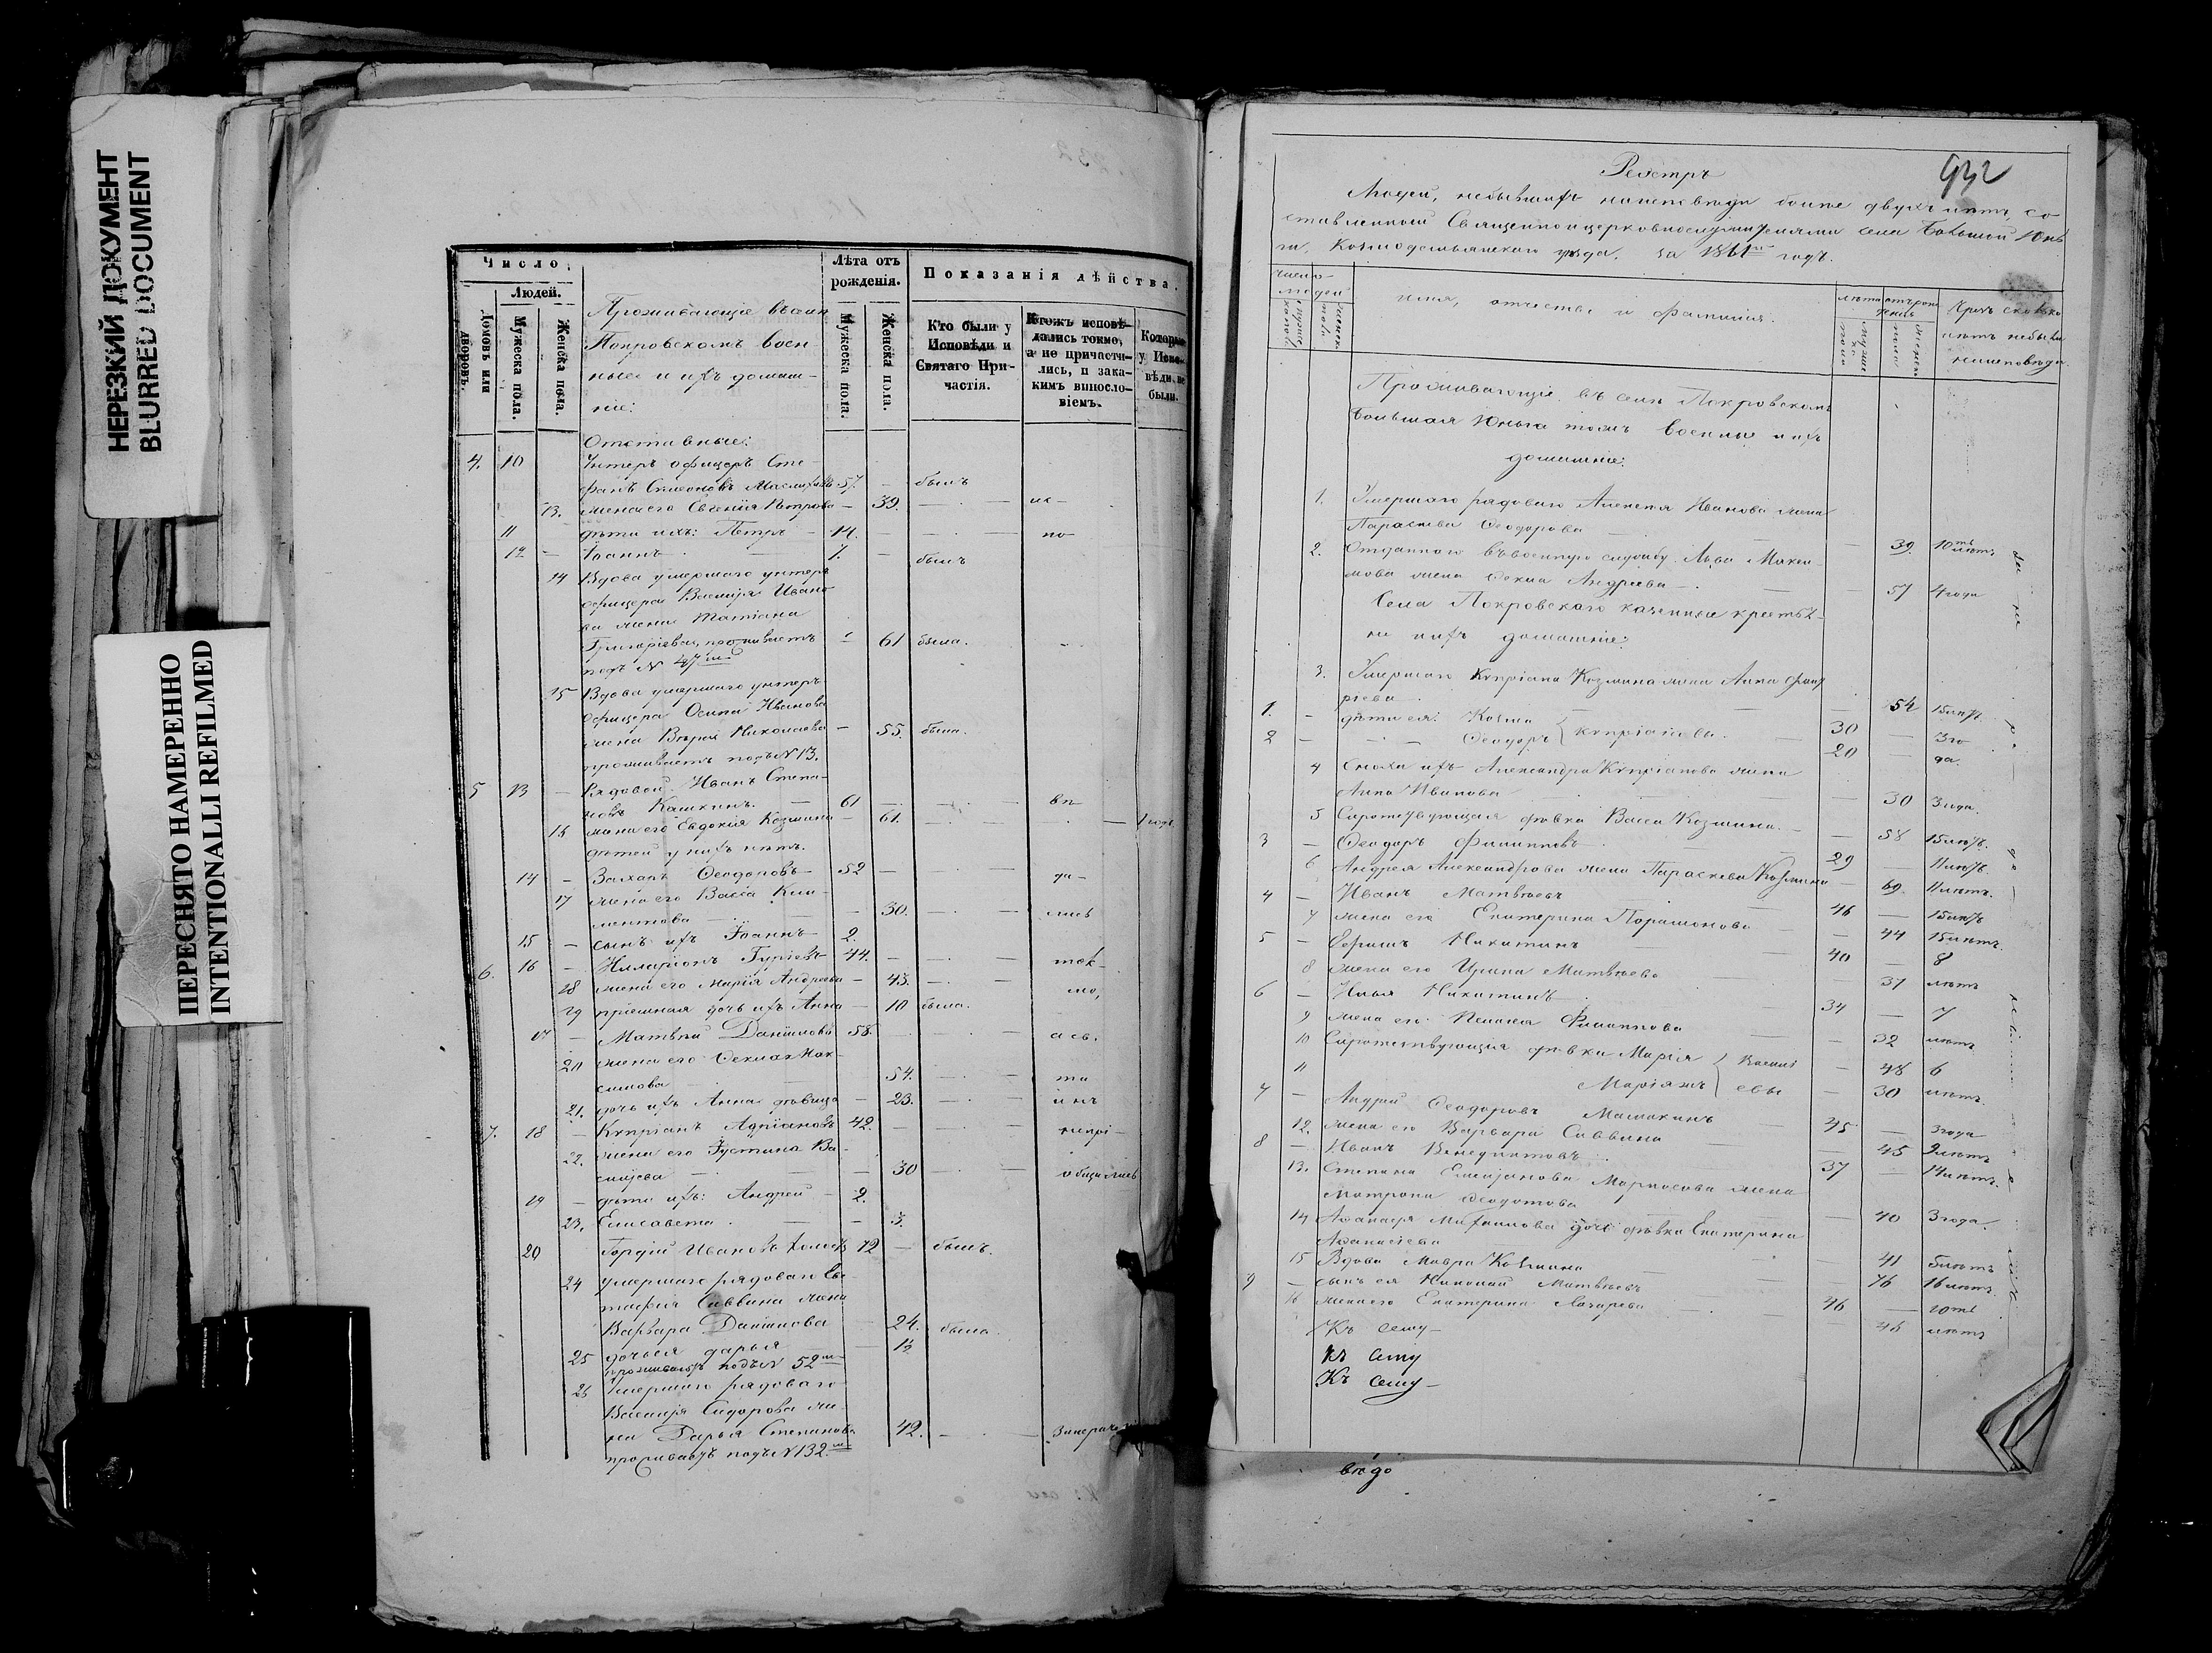 НЕРЕЗКИЙ ДОКУМЕНТ
BLURRED DOCUMENT
ПЕРЕСНЯТО НАМЕРЕННО
INTENTIONALLI REFILMED
Число
Людей.
Домовъ или дворовъ.
Мужеска пола.
Женска пола.
Проживающіе въ селѣ
Покровскомъ воен-
ные и ихъ домаш-
ніе:
Лѣта отъ рожденія.
Мужеска пола.
Женска пола.
Показанія дѣйства.
Кто были у Исповѣди и Святаго Причастія.
Ктожъ исповѣдались токмо, а не причастились, и за какимъ винословіемъ.
Которые у Исповѣди не были.
Отставные:
4. 10 Унтеръ офицеръ Сте-
фанъ Симеоновъ 57. — былъ
13. жена его Евгенія Петрова — 39. — не-
11 дѣти ихъ: Петръ — 14. — по-
12 — Іоаннъ — 7. — былъ
14 Вдова умершаго унтеръ
офицера Василія Ивано-
ва жена Татіана
Григоріева, проживаетъ — 61 была.
подъ N 47мъ
15 Вдова умершаго унтеръ
офицера Осипа Иванова
жена Вѣра Николаева — 55. была.
проживаетъ подъ N 13.
5 13 — Рядовой Иванъ Степа-
новъ Кашкинъ. — 61
16 жена его Евдокія Козмина — 61. — 1 годъ
дѣтей у нихъ нѣтъ.
14 — Захаръ Ѳеодоровъ — 52 — да-
17 жена его Васса Кли-
ментова — 30. — лись
15 — сынъ ихъ Іоаннъ — 2.
6. 16 — Иларіонъ Гуріевъ 44. — ток-
18 жена его Марія Андреева — 43. — мо,
19 пріемная дочь ихъ Анна — 10 была.
17 — Матвѣй Даниловъ 58. — а св.
20 жена его Ѳекла Мак-
симова — 54. — та
21. дочь ихъ Анна дѣвица — 23. — инъ
7. 18 — Купріанъ Адріановъ 42. — непрі-
22. жена его Іустина Ва-
силіева — 30 — общались
19 — дѣти ихъ: Андрей — 2.
23. Елисавета. — 3.
20 Гордій Ивановъ 72 — былъ.
24 умершаго рядоваго Ев-
стафія Саввина жена
Варвара Данилова — 24. была.
25 дочь ея Дарья — 13
проживаютъ подъ N 52мъ
26 Умершаго рядоваго
Василія Сидорова же-
на Дарья Степанова 42.
проживаетъ подъ N 132мъ
932
Реэстръ
Людей, небывшихъ наисповѣди болѣе двухъ лѣтъ, со-
ставленный Священноицерковнослужителями села Большой Юнь-
ги, Козмодемьянскаго уѣзда. за 1861й годъ.
число людей
имя, отчество и фамилія.
лѣта отъ рожденія
сколько лѣтъ небыли наисповѣди
Проживающіе въ селѣ Покровскомъ
Большая Юньга тожъ Военные и ихъ
домашніе:
1. Умершаго рядоваго Алексѣя Иванова жена
Параскева Ѳеодорова — 39. 10ть лѣтъ
2. Отданнаго въ военную службу Льва Макси-
мова жена Ѳекла Андреева — 57 4 года
Села Покровскаго казенные крестья-
не и ихъ домашніе:
3. Умершаго Купріана Козмина жена Анна
— 54 15 лѣтъ
1. — дѣти ея: Козма } Купріановы. 30 — 3 го-
2 — Ѳеодоръ 20 — да.
4 Сноха ихъ Александра Купріанова жена
Анна Иванова — 30 3 года.
5 Сиротствующая дѣвка Васса Козмина. — 58 15 лѣтъ.
3 — Ѳеодоръ Филипповъ 29 11 лѣтъ.
6 Андрея Александрова жена Параскева Козмина — 69. 11 лѣтъ.
4 — Иванъ Матвѣевъ 46 — 15 лѣтъ
7 жена его Екатерина Парамонова — 44 15 лѣтъ.
5 — Никитинъ 40 — 8
8 жена его Ирина Матвѣева 37 лѣтъ
6 — Илья Никитинъ 34 — 7
9 жена его Пелагея Филиппова — 32 лѣтъ
10 Сиротствующія дѣвки Марія } Василі- — 48 6
11 Маріяжъ евы — 30 лѣтъ.
7 — Андрей Ѳеодоровъ Малакинъ 45 — 3 года
12. жена его Варвара Саввина — 45 9 лѣтъ
8 — Иванъ Венедиктовъ 37 14 лѣтъ.
13. Степана Емеліанова жена
Матрона Ѳеодотова — 40 3 года.
14 Аѳанасія Михайлова дочь дѣвка Екатерина
Аѳанасіева — 41 5 лѣтъ
15 Вдова Мавра Козмина — 76 16 лѣтъ.
9 — сынъ ея Николай Матвѣевъ 46 — 10ть
16 жена его Екатерина Лазарева — 46 лѣтъ
Къ сему
Къ сему
Къ сему